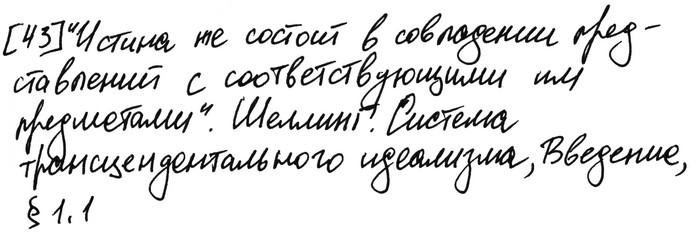 [43] "Истина не состоит в совпадении пред-
ставлений с соответствующими им
предметами". Шеллинг. Система
трансцендентального идеализма, Введение,
§ 1.1